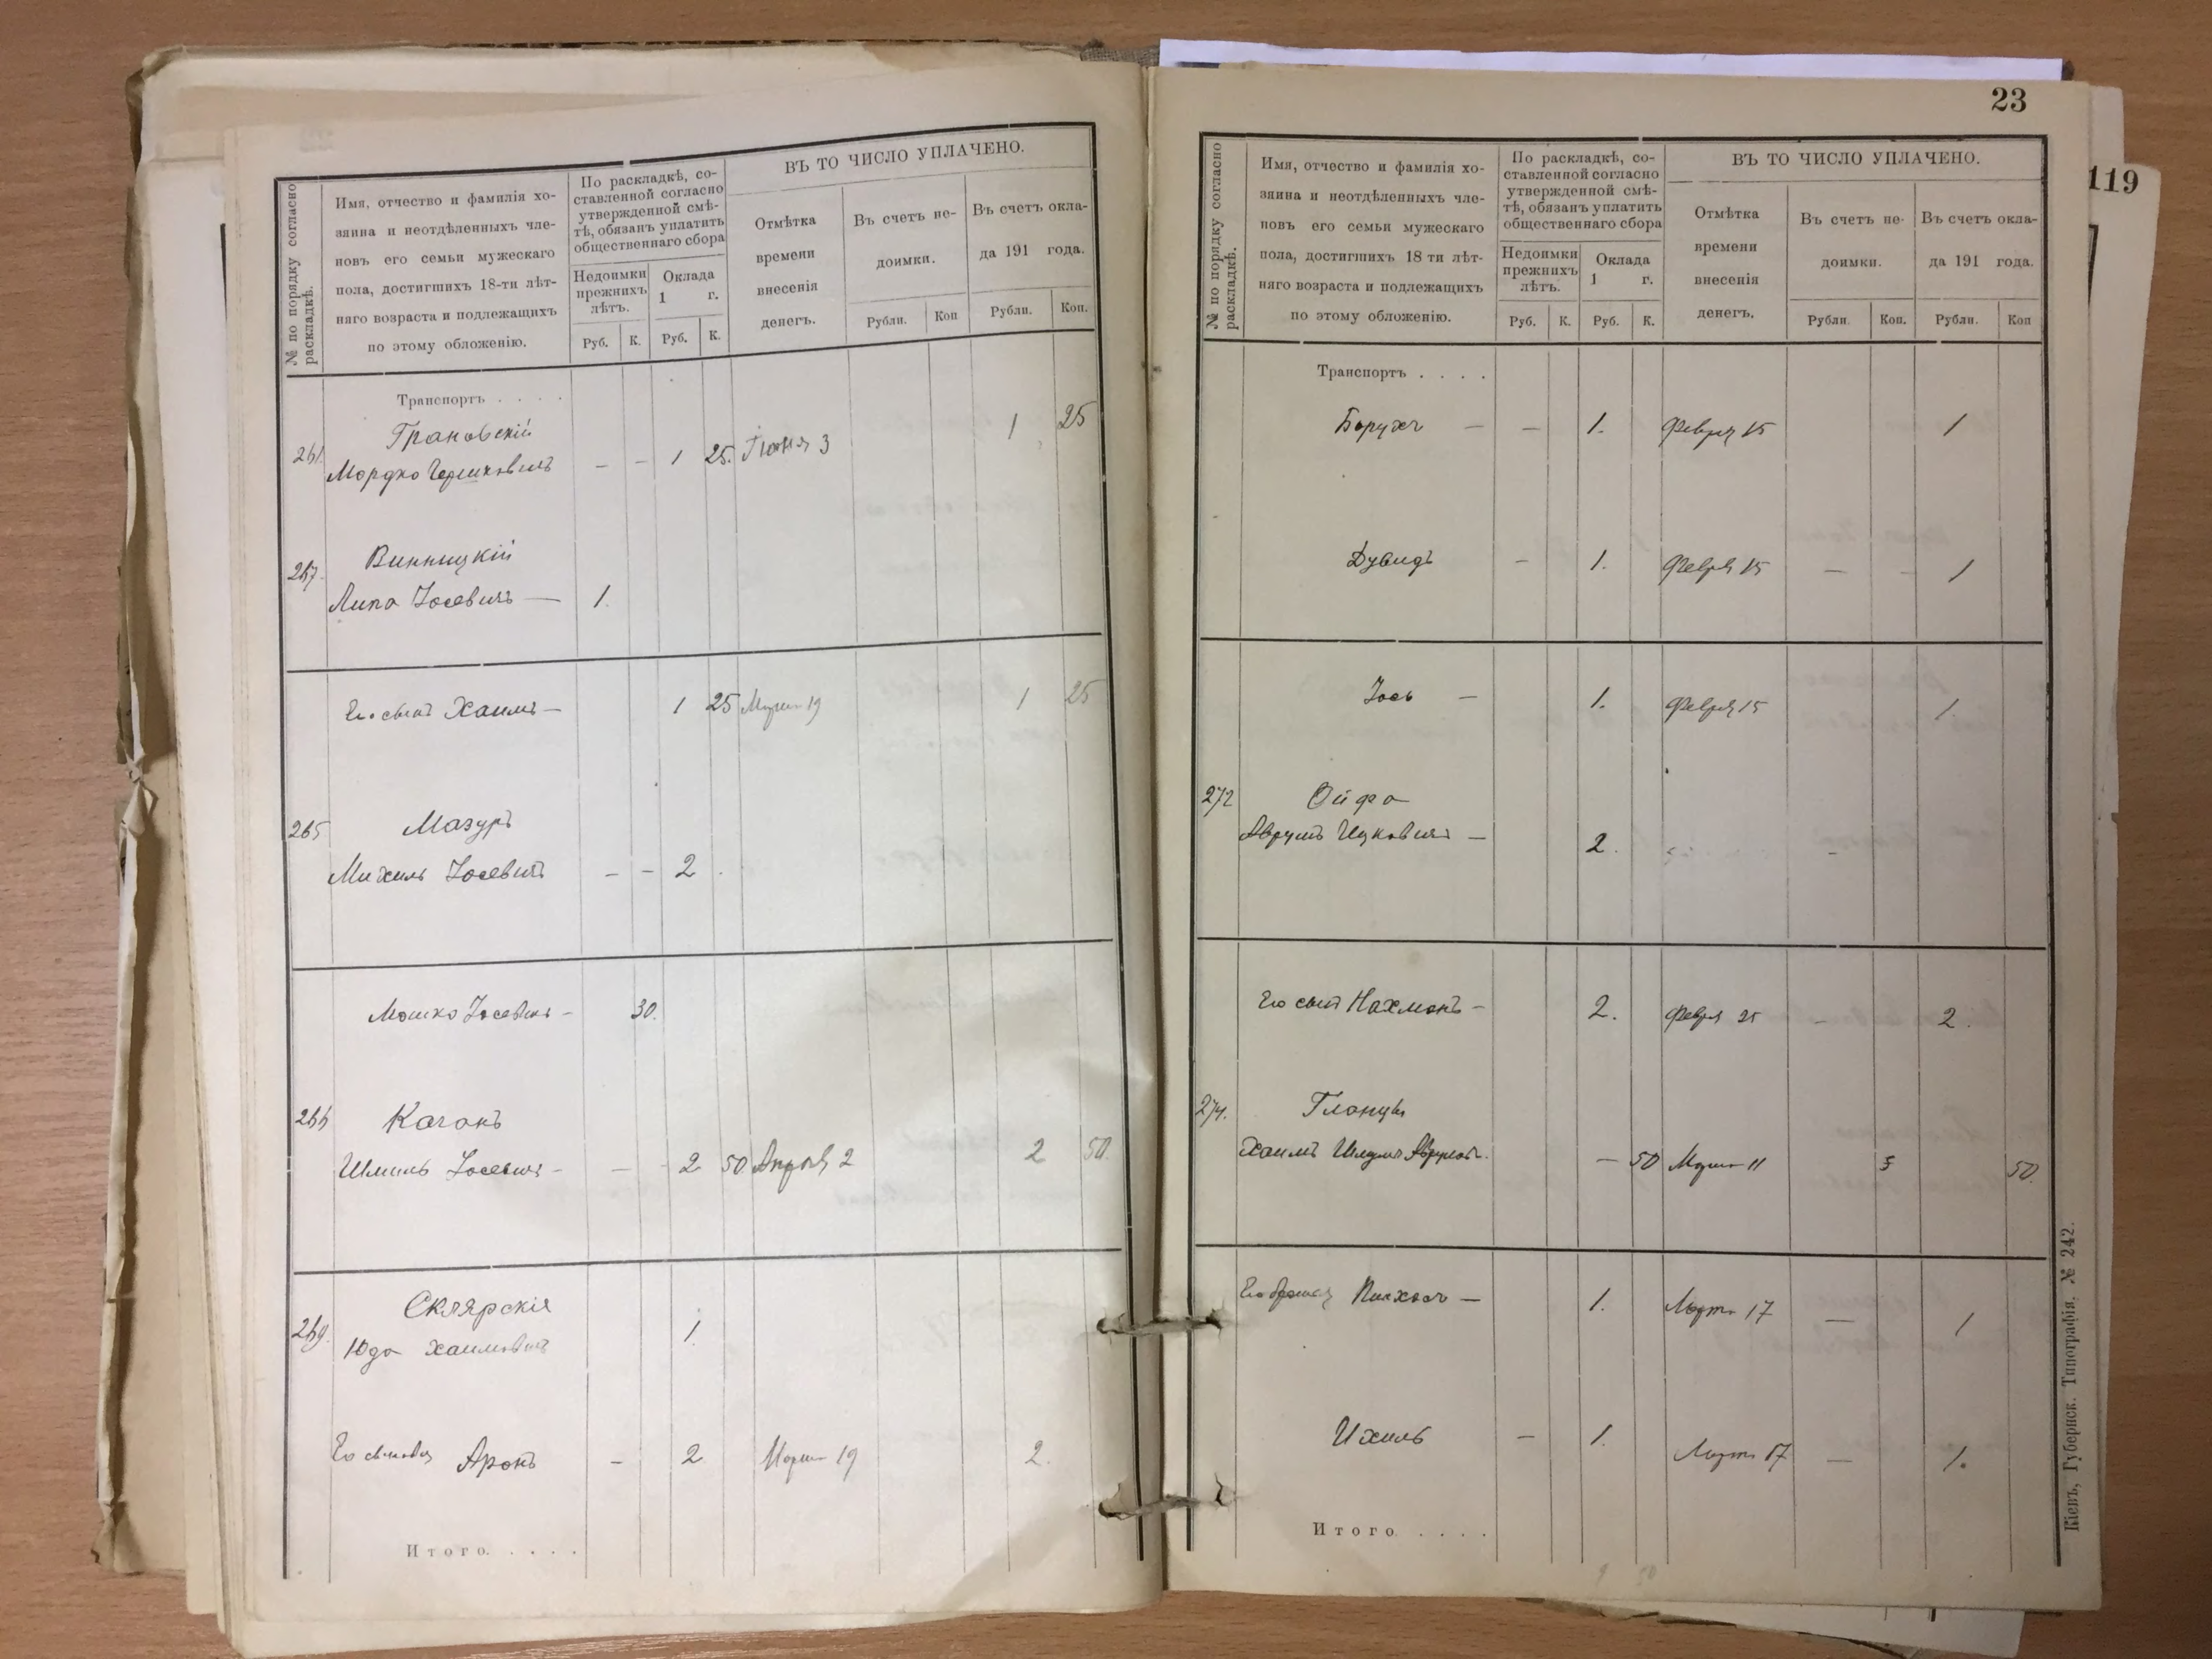 № по порядку согласно раскладкѣ.
Имя, отчество и фамилія хо-
зяина и неотдѣленныхъ чле-
новъ его семьи мужескаго
пола, достигшихъ 18-ти лѣт-
няго возраста и подлежащихъ
по этому обложенію.
По раскладкѣ, со-
ставленной согласно
утвержденной смѣ-
тѣ, обязанъ уплатить
общественнаго сбора
Недоимки
прежнихъ
лѣтъ.
Оклада
1 г.
Руб. К. Руб. К.
ВЪ ТО ЧИСЛО УПЛАЧЕНО.
Отмѣтка
времени
внесенія
денегъ.
Въ счетъ не-
доимки.
Въ счетъ окла-
да 191 года.
Рубли. Коп Рубли. Коп.
Транспортъ . . . .
Грановскій 1 25
261 Мордко — — 1 25. Іюня 3
Винницкій
267.
Липа Іосевичъ — 1.
Его сынъ Хаимъ — 1 25 Марта 19 1 25
265 Мазуръ
Михиль Іосевичъ — — 2 .
Мошко Іосевичъ — 30.
266 Каганъ
Шмиль Іосевичъ — — 2 50 Апрѣля 2 2 50.
Склярскій
269. Юда Хаимовичъ 1.
Его сыновья Аронъ — 2 Марта 19 2.
Итого. . . . .
23
№ по порядку согласно раскладкѣ.
Имя, отчество и фамилія хо-
зяина и неотдѣленныхъ чле-
новъ его семьи мужескаго
пола, достигшихъ 18 ти лѣт-
няго возраста и подлежащихъ
по этому обложенію.
По раскладкѣ, со-
ставленной согласно
утвержденной смѣ-
тѣ, обязанъ уплатить
общественнаго сбора
Недоимки
прежнихъ
лѣтъ.
Оклада
1 г.
Руб. К. Руб. К.
ВЪ ТО ЧИСЛО УПЛАЧЕНО.
Отмѣтка
времени
внесенія
денегъ.
Въ счетъ не-
доимки.
Въ счетъ окла-
да 191 года.
Рубли. Коп. Рубли. Коп
Транспортъ . . . .
Борухъ — — 1. Февря 15 1
Дувидъ — 1. Февря 15 — — 1
Іось — 1. Февря 15 1.
272 Ойфа
Аврумъ Ицковичъ — 2.
Его сынъ Нахманъ — 2. Февря 25 — 2.
274. Гланцъ
Хаимъ Шлема — 50 Марта 11 50.
Его братья Пинхасъ — 1. Марта 17 — 1
Ихиль — 1. Марта 17 — 1.
Итого . . . .
Кіевъ, Губернск. Типографія. № 242.
119